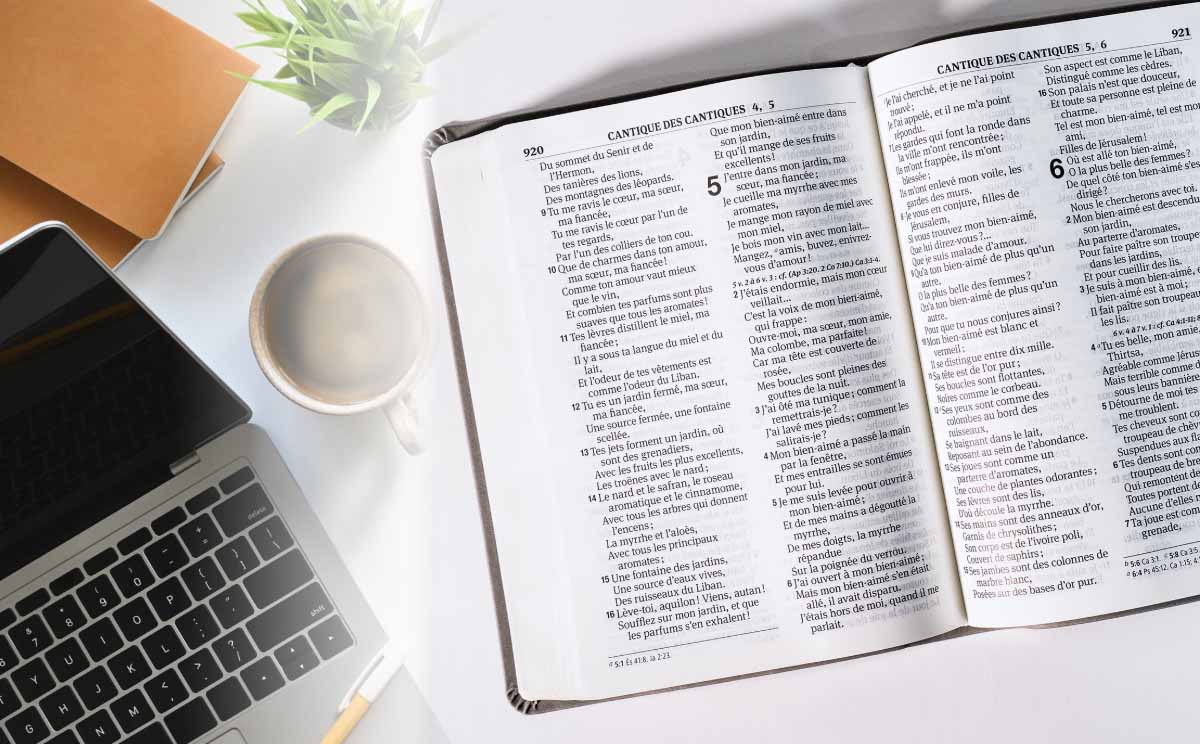 920
CANTIQUE DES CANTIQUES 4, 5
Du sommet du Senir et de
l'Hermon,
Des tanières des lions,
Des montagnes des léopards.
9 Tu me ravis le cœur, ma sœur,
ma fiancée,
Tu me ravis le cœur par l'un de
tes regards,
Par l'un des colliers de ton cou.
10 Que de charmes dans ton amour,
ma sœur, ma fiancée!
Comme ton amour vaut mieux
que le vin,
Et combien tes parfums sont plus
suaves que tous les aromates!
11 Tes lèvres distillent le miel, ma
fiancée;
Il y a sous ta langue du miel et du
lait,
Et l'odeur de tes vêtements est
comme l'odeur du Liban.
12 Tu es un jardin fermé, ma sœur,
ma fiancée,
Une source fermée, une fontaine
scellée.
13 Tes jets forment un jardin, où
sont des grenadiers,
Avec les fruits les plus excellents,
Les troènes avec le nard;
14 Le nard et le safran, le roseau
aromatique et le cinnamome,
Avec tous les arbres qui donnent
l'encens;
La myrrhe et l'aloès,
Avec tous les principaux
aromates;
15 Une fontaine des jardins,
Une source d'eaux vives,
Des ruisseaux du Liban.
16 Lève-toi, aquilon! Viens, autan!
Soufflez sur mon jardin, et que
les parfums s'en exhalent!
5:1 És 41:8. Ja 2:23.
Que mon bien-aimé entre dans
son jardin,
Et qu'il mange de ses fruits
excellents!
5 J'entre dans mon jardin, ma
sœur, ma fiancée;
Je cueille ma myrrhe avec mes
aromates,
Je mange mon rayon de miel avec
mon miel,
Je bois mon vin avec mon lait...
Mangez, amis, buvez, enivrez-
vous d'amour!
5 v. 2 à 6 v. 3: cf. (Ap 3:20. 2 Co 7:10.) Ca 3:1-4.
2 J'étais endormie, mais mon cœur
veillait...
C'est la voix de mon bien-aimé,
qui frappe:
Ouvre-moi, ma sœur, mon amie,
Ma colombe, ma parfaite!
Car ma tête est couverte de
rosée,
Mes boucles sont pleines des
gouttes de la nuit.
3 J'ai ôté ma tunique; comment la
remettrais-je?
J'ai lavé mes pieds; comment les
salirais-je?
4 Mon bien-aimé a passé la main
par la fenêtre,
Et mes entrailles se sont émues
pour lui.
5 Je me suis levée pour ouvrir à
mon bien-aimé;
Et de mes mains a dégoutté la
myrrhe,
De mes doigts, la myrrhe
répandue
Sur la poignée du verrou.
6 J'ai ouvert à mon bien-aimé;
Mais mon bien-aimé s'en était
allé, il avait disparu.
J'étais hors de moi, quand il me
parlait.
CANTIQUE DES CANTIQUES 5, 6
921
Je l'ai cherché, et je ne l'ai point
trouvé;
Je l'ai appelé, et il ne m'a point
répondu.
7 Les gardes qui font la ronde dans
la ville m'ont rencontrée;
Ils m'ont frappée, ils m'ont
blessée;
Ils m'ont enlevé mon voile, les
gardes des murs.
8 Je vous en conjure, filles de
Jérusalem,
Si vous trouvez mon bien-aimé,
Que lui direz-vous?...
Que je suis malade d'amour.
9 Qu'a ton bien-aimé de plus qu'un
autre,
O la plus belle des femmes?
Qu'a ton bien-aimé de plus qu'un
autre,
Pour que tu nous conjures ainsi?
10 Mon bien-aimé est blanc et
vermeil;
Il se distingue entre dix mille.
11 Sa tête est de l'or pur;
Ses boucles sont flottantes,
Noires comme le corbeau.
12 Ses yeux sont comme des
colombes au bord des
ruisseaux,
Se baignant dans le lait,
Reposant au sein de l'abondance.
13 Ses joues sont comme un
parterre d'aromates,
Une couche de plantes odorantes;
Ses lèvres sont des lis,
D'où découle la myrrhe.
14 Ses mains sont des anneaux d'or,
Garnis de chrysolithes;
Son corps est de l'ivoire poli,
Couvert de saphirs;
15 Ses jambes sont des colonnes de
marbre blanc,
Posées sur des bases d'or pur.
Son aspect est comme le Liban,
Distingué comme les cèdres.
16 Son palais n'est que douceur,
Et toute sa personne est pleine de
charme.
Tel est mon bien-aimé, tel est mon
ami,
Filles de Jérusalem!
6 Où est allé ton bien-aimé,
O la plus belle des femmes?
De quel côté ton bien-aimé s'est
dirigé?
Nous le chercherons avec toi.
2 Mon bien-aimé est descendu
son jardin,
Au parterre d'aromates,
Pour faire paître son troupeau
dans les jardins,
Et pour cueillir des lis.
3 Je suis à mon bien-aimé,
bien-aimé est à moi;
Il fait paître son troupeau
les lis.
6 v. 4 à 7 v. 1: cf. Ca 4:1-11;
4 Tu es belle, mon amie,
Thirtsa,
Agréable comme
Mais terrible comme
sous leurs bannières
5 Détourne de moi tes
me troublent.
Tes cheveux sont
troupeau de
Suspendues aux
6 Tes dents sont
troupeau de
Qui remontent
Toutes portent
Aucune d'elles
7 Ta joue est
grenade,
5:6 Ca 3:1. 5:8 Ca 3:5.
6:4 Ps 45:12. Ca 1:15; 4:
delete
shift
0
9
8
7
P
O
I
U
Y
L
K
J
H
M
N
G